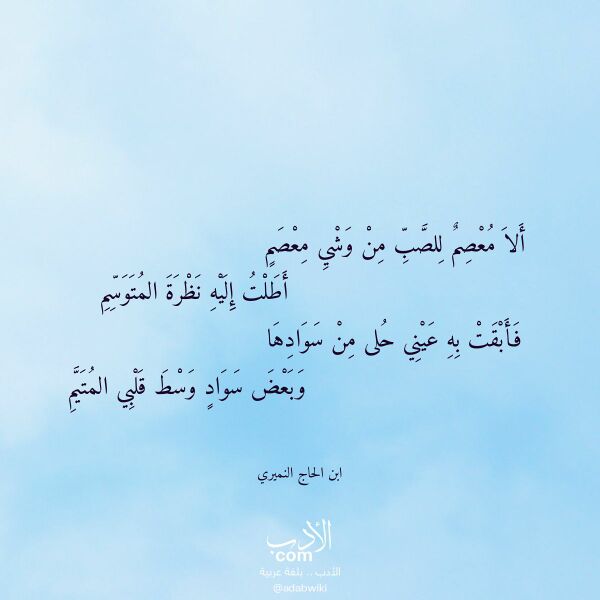 أَلاَ مُعْصِمٌ لِلصَّبِّ مِنْ وَشْيِ مِعْصَمٍ
أَطَلْتُ إِلَيْهِ نَظْرَةَ المُتَوَسِّمِ
فَأَبْقَتْ بِهِ عَيْنِي حُلى مِنْ سَوَادِهَا
وَبَعْضَ سَوَادٍ وَسْطَ قَلْبِي المُتَيَّمِ
ابن الحاج النميري
الأدب
.com
الأدب .. بلغة عربية
@adabwiki